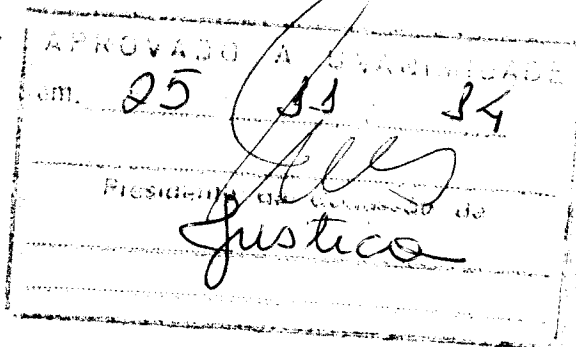 APROVADO A UNANIMIDADE
em. 25 11 94
Presidente da Comissão de
Justica